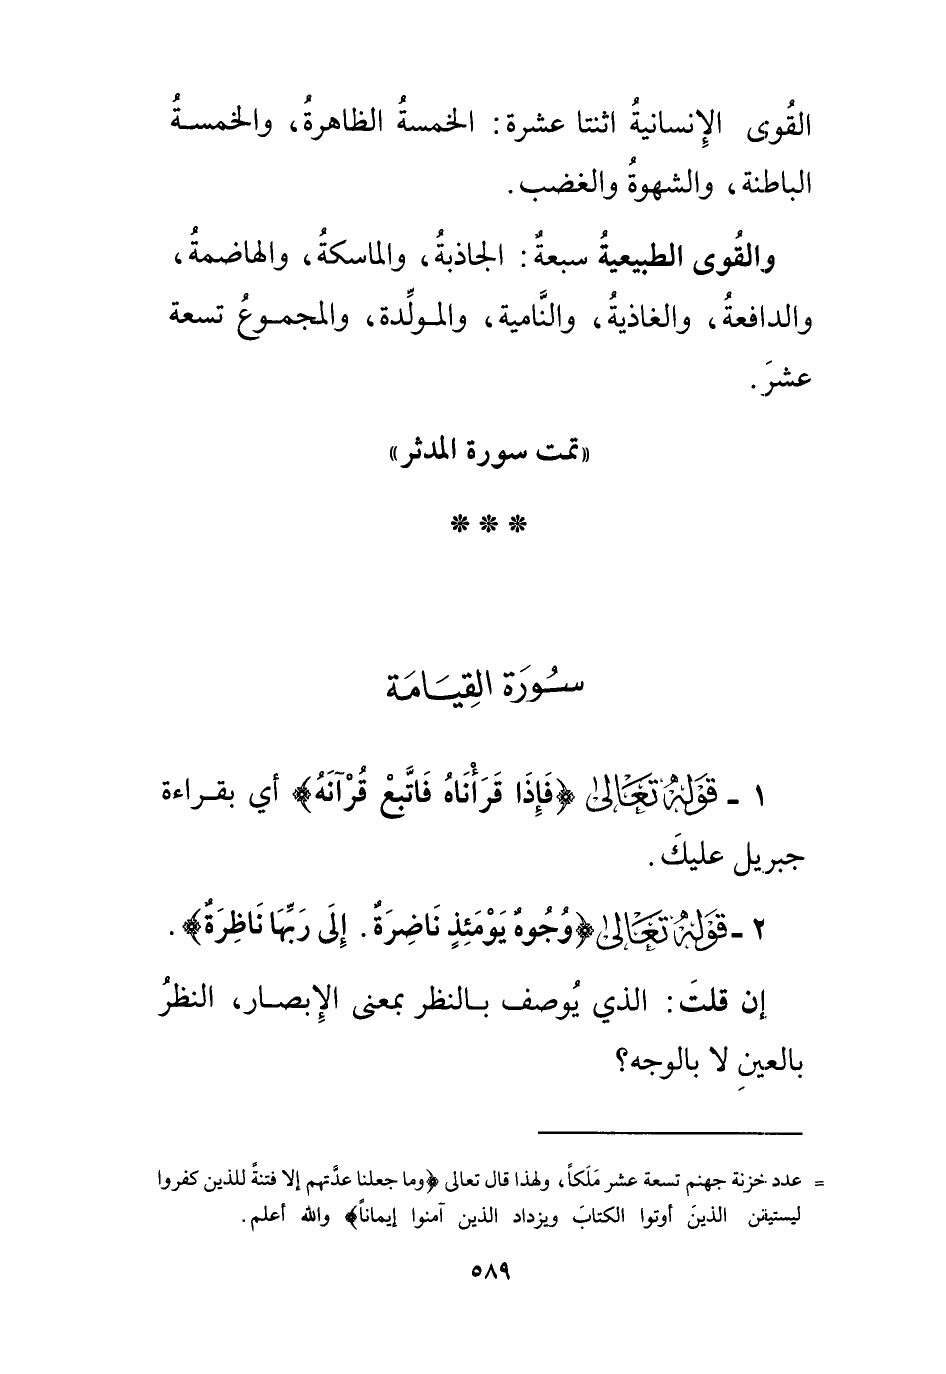 القُوى الإِنسانيةُ اثنتا عشرة: الخمسةُ الظاهرةُ، والخمسـةُ
الباطنة، والشهوةُ والغضب.
والقُوى الطبيعيةُ سبعةٌ: الجاذبةُ، والماسكةُ، والهاضمةُ،
والدافعةُ، والغاذيةُ، والنَّامية، والمـولِّدة، والمجمـوعُ تسعة
عشرَ.
«تمت سورة المدثر»
***
سُورَة القِيَامَة
١ - قَوْلهُ تَعَالىٰ ﴿فَإِذَا قَرَأْنَاهُ فَاتَّبِعْ قُرْآنَهُ﴾ أي بقـراءة
جبريل عليكَ.
٢ - قَوْلهُ تَعَالىٰ ﴿وُجُوهٌ يَوْمَئِذٍ نَاضِرَةٌ. إِلَى رَبِّهَا نَاظِرَةٌ﴾.
إن قلتَ: الذي يُوصف بـالنظر بمعنى الإِبصـار، النظرُ
بالعينِ لا بالوجه؟
= عدد خزنة جهنم تسعة عشر مَلَكاً، ولهذا قال تعالى ﴿وما جعلنا عدَّتهم إلا فتنةً للذين كفروا
ليستيقن الذينَ أوتوا الكتابَ ويزداد الذين آمنوا إيماناً﴾ والله أعلم.
٥٨٩